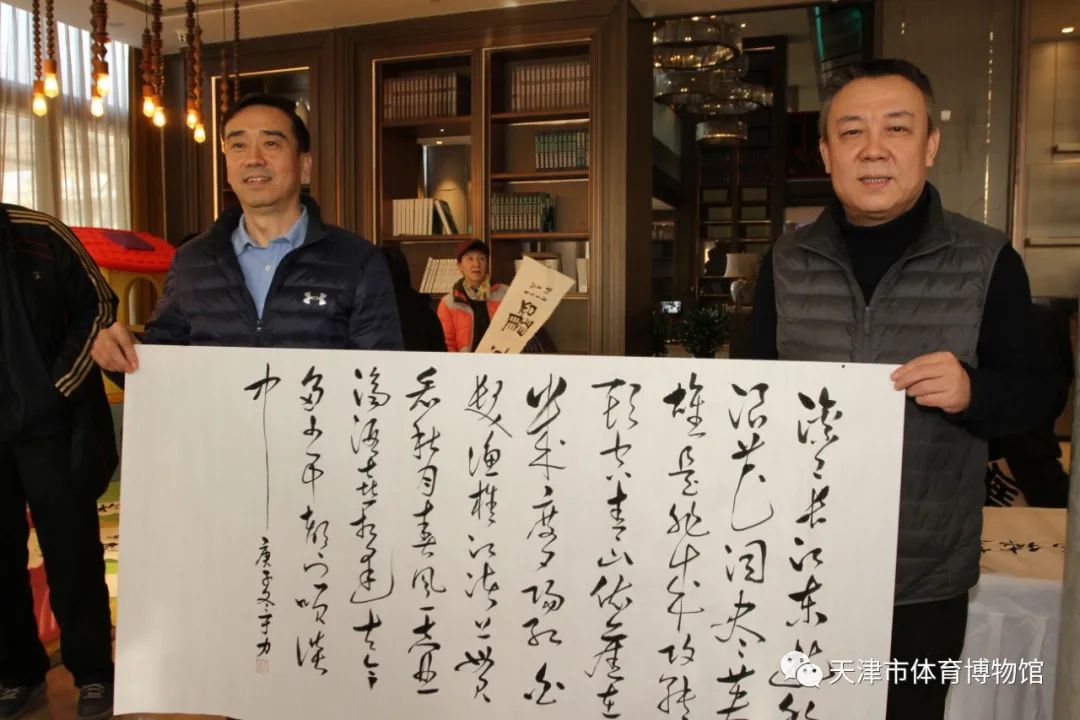 滚々长江东逝水
浪花淘尽英
雄是非成败转
头空青山依旧在
几度夕阳红白
发渔樵江渚上惯
看秋月春风一壶
浊酒喜相逢古今
多少事都付笑谈
中
庚子冬
天津市体育博物馆